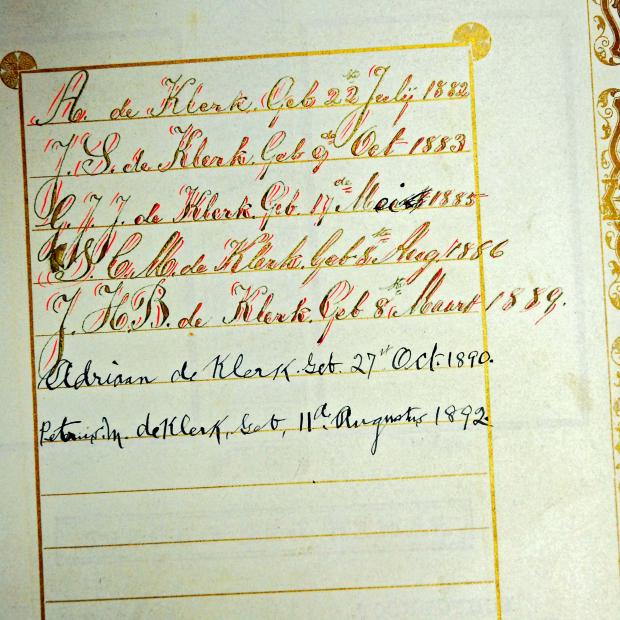 A. de Klerk. Geb 22ste July 1882
J. S. de Klerk. Geb 9de Oct 1883
G. J. J. de Klerk. Geb. 17de Mei 1885
S. C. M. de Klerk. Geb 8ste Aug. 1886
J. H. B. de Klerk. Geb 8ste Maart 1889.
Adriaan de Klerk. Geb. 27st Oct. 1890.
M. de Klerk, Geb, 11de Augustus 1892.